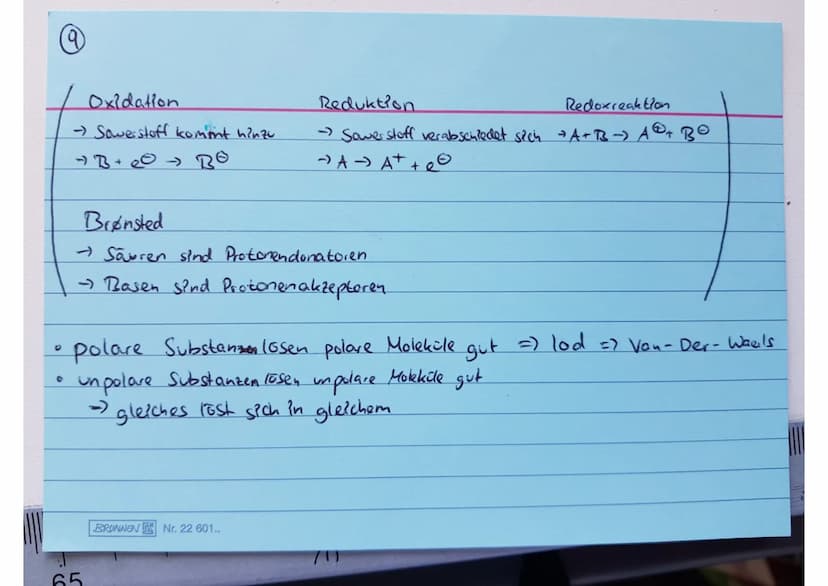 9
Oxidation Reduktion Redoxreaktion
→ Sauerstoff kommt hinzu → Sauerstoff verabschiedet sich → A + B → A⊕ + B⊖
→ B + e⊖ → B⊖ → A → A⁺ + e⊖
Brønsted
→ Säuren sind Protonendonatoren
→ Basen sind Protonenakzeptoren
• polare Substanzen lösen polare Moleküle gut => Iod => Van-Der-Waals
• unpolare Substanzen lösen unpolare Moleküle gut
→ gleiches löst sich in gleichem
BRUNNEN Nr. 22 601..
65